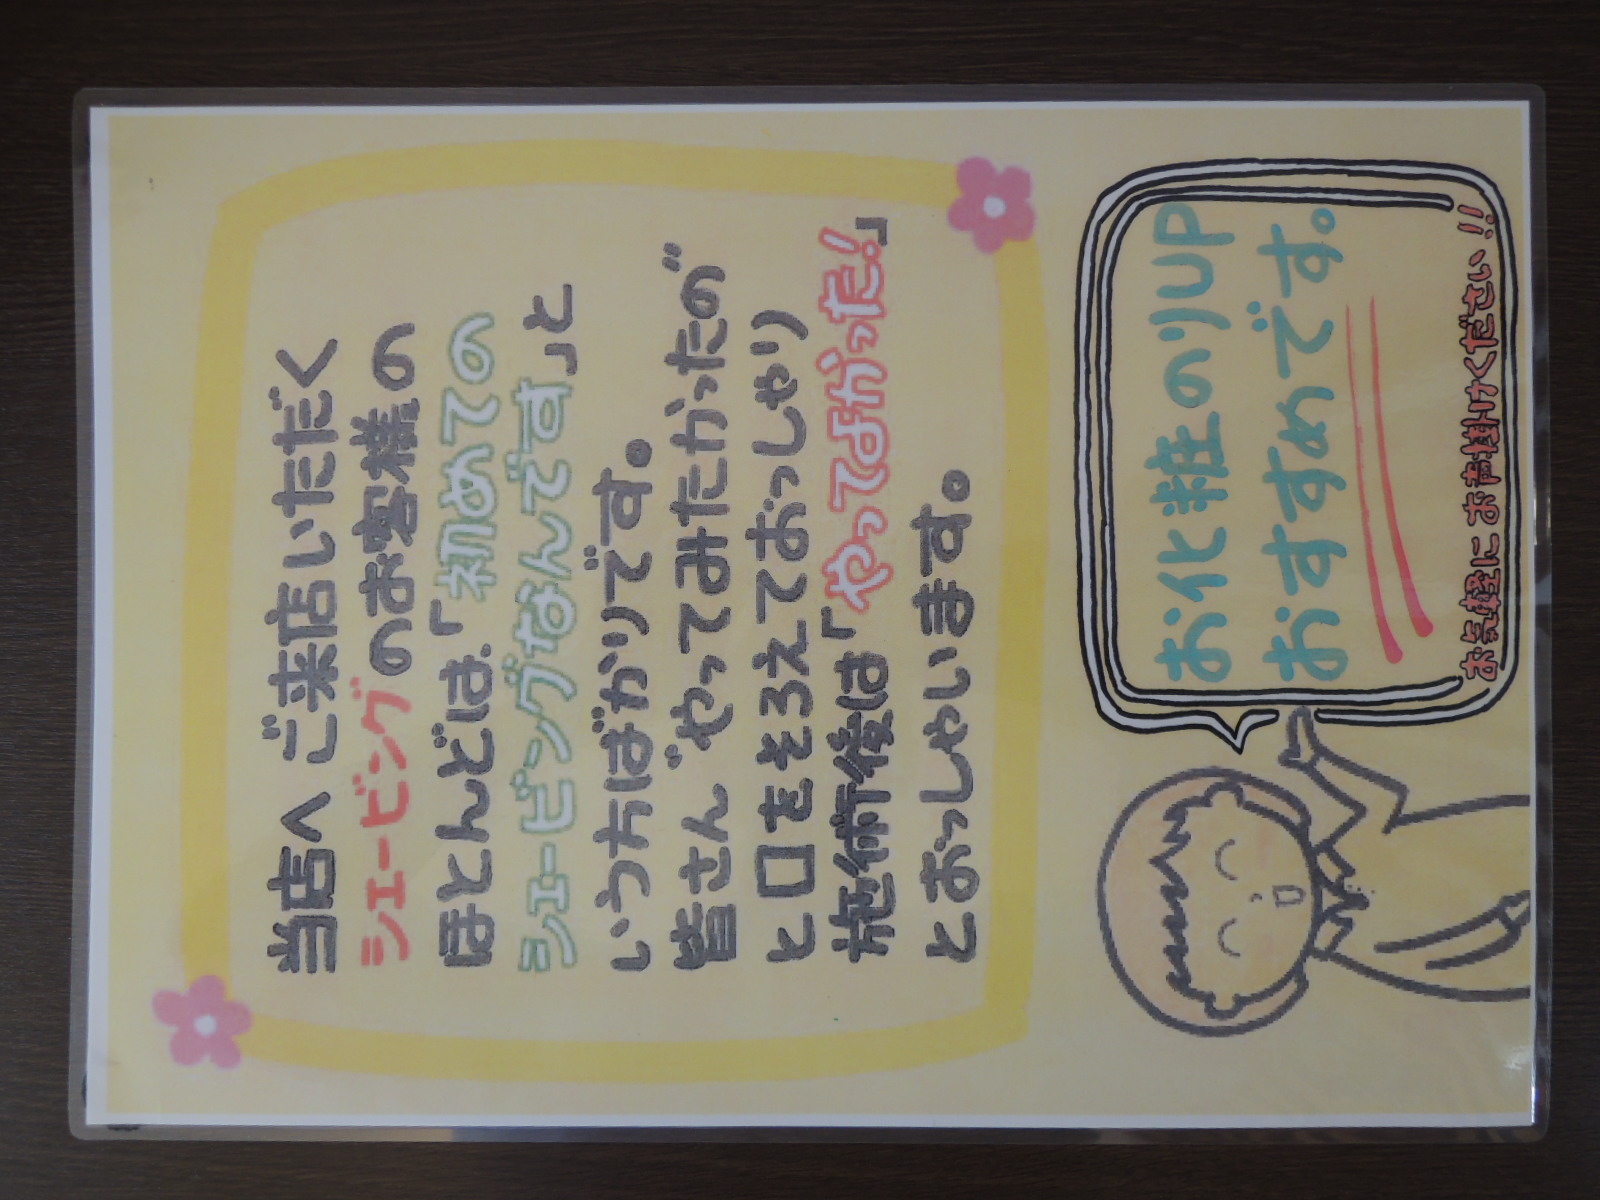 当店へ ご来店いただく
シェービングのお客様の
ほとんどは、「初めての
シェービングなんです」と
いう方ばかりです。
皆さん゛やってみたかったの゛
と口をそろえておっしゃり
施術後は「やってよかった!」
とおっしゃいます。
お化粧のりUP
おすすめです。
お気軽に お声掛けください!!